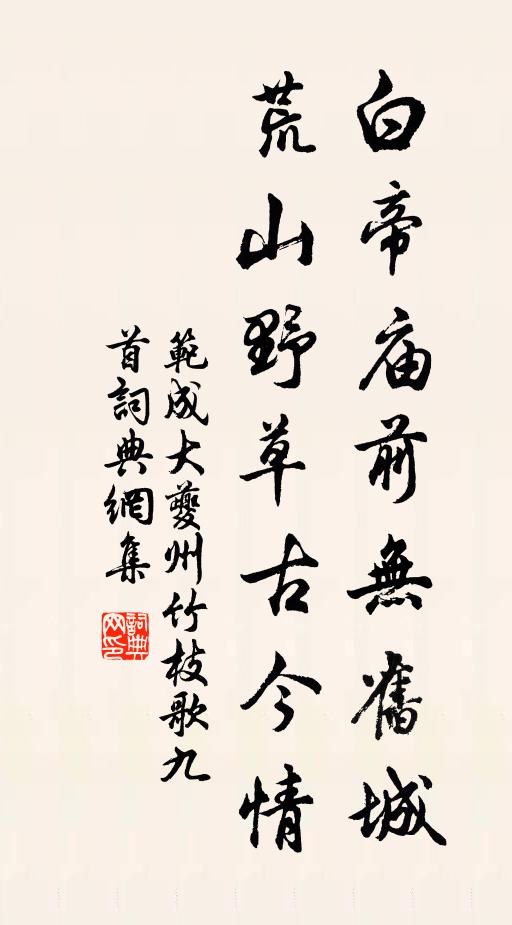 白帝庙前無舊城
荒山野草古今情
範成大夔州竹枝歌九
首詞典網集
詞典
网印